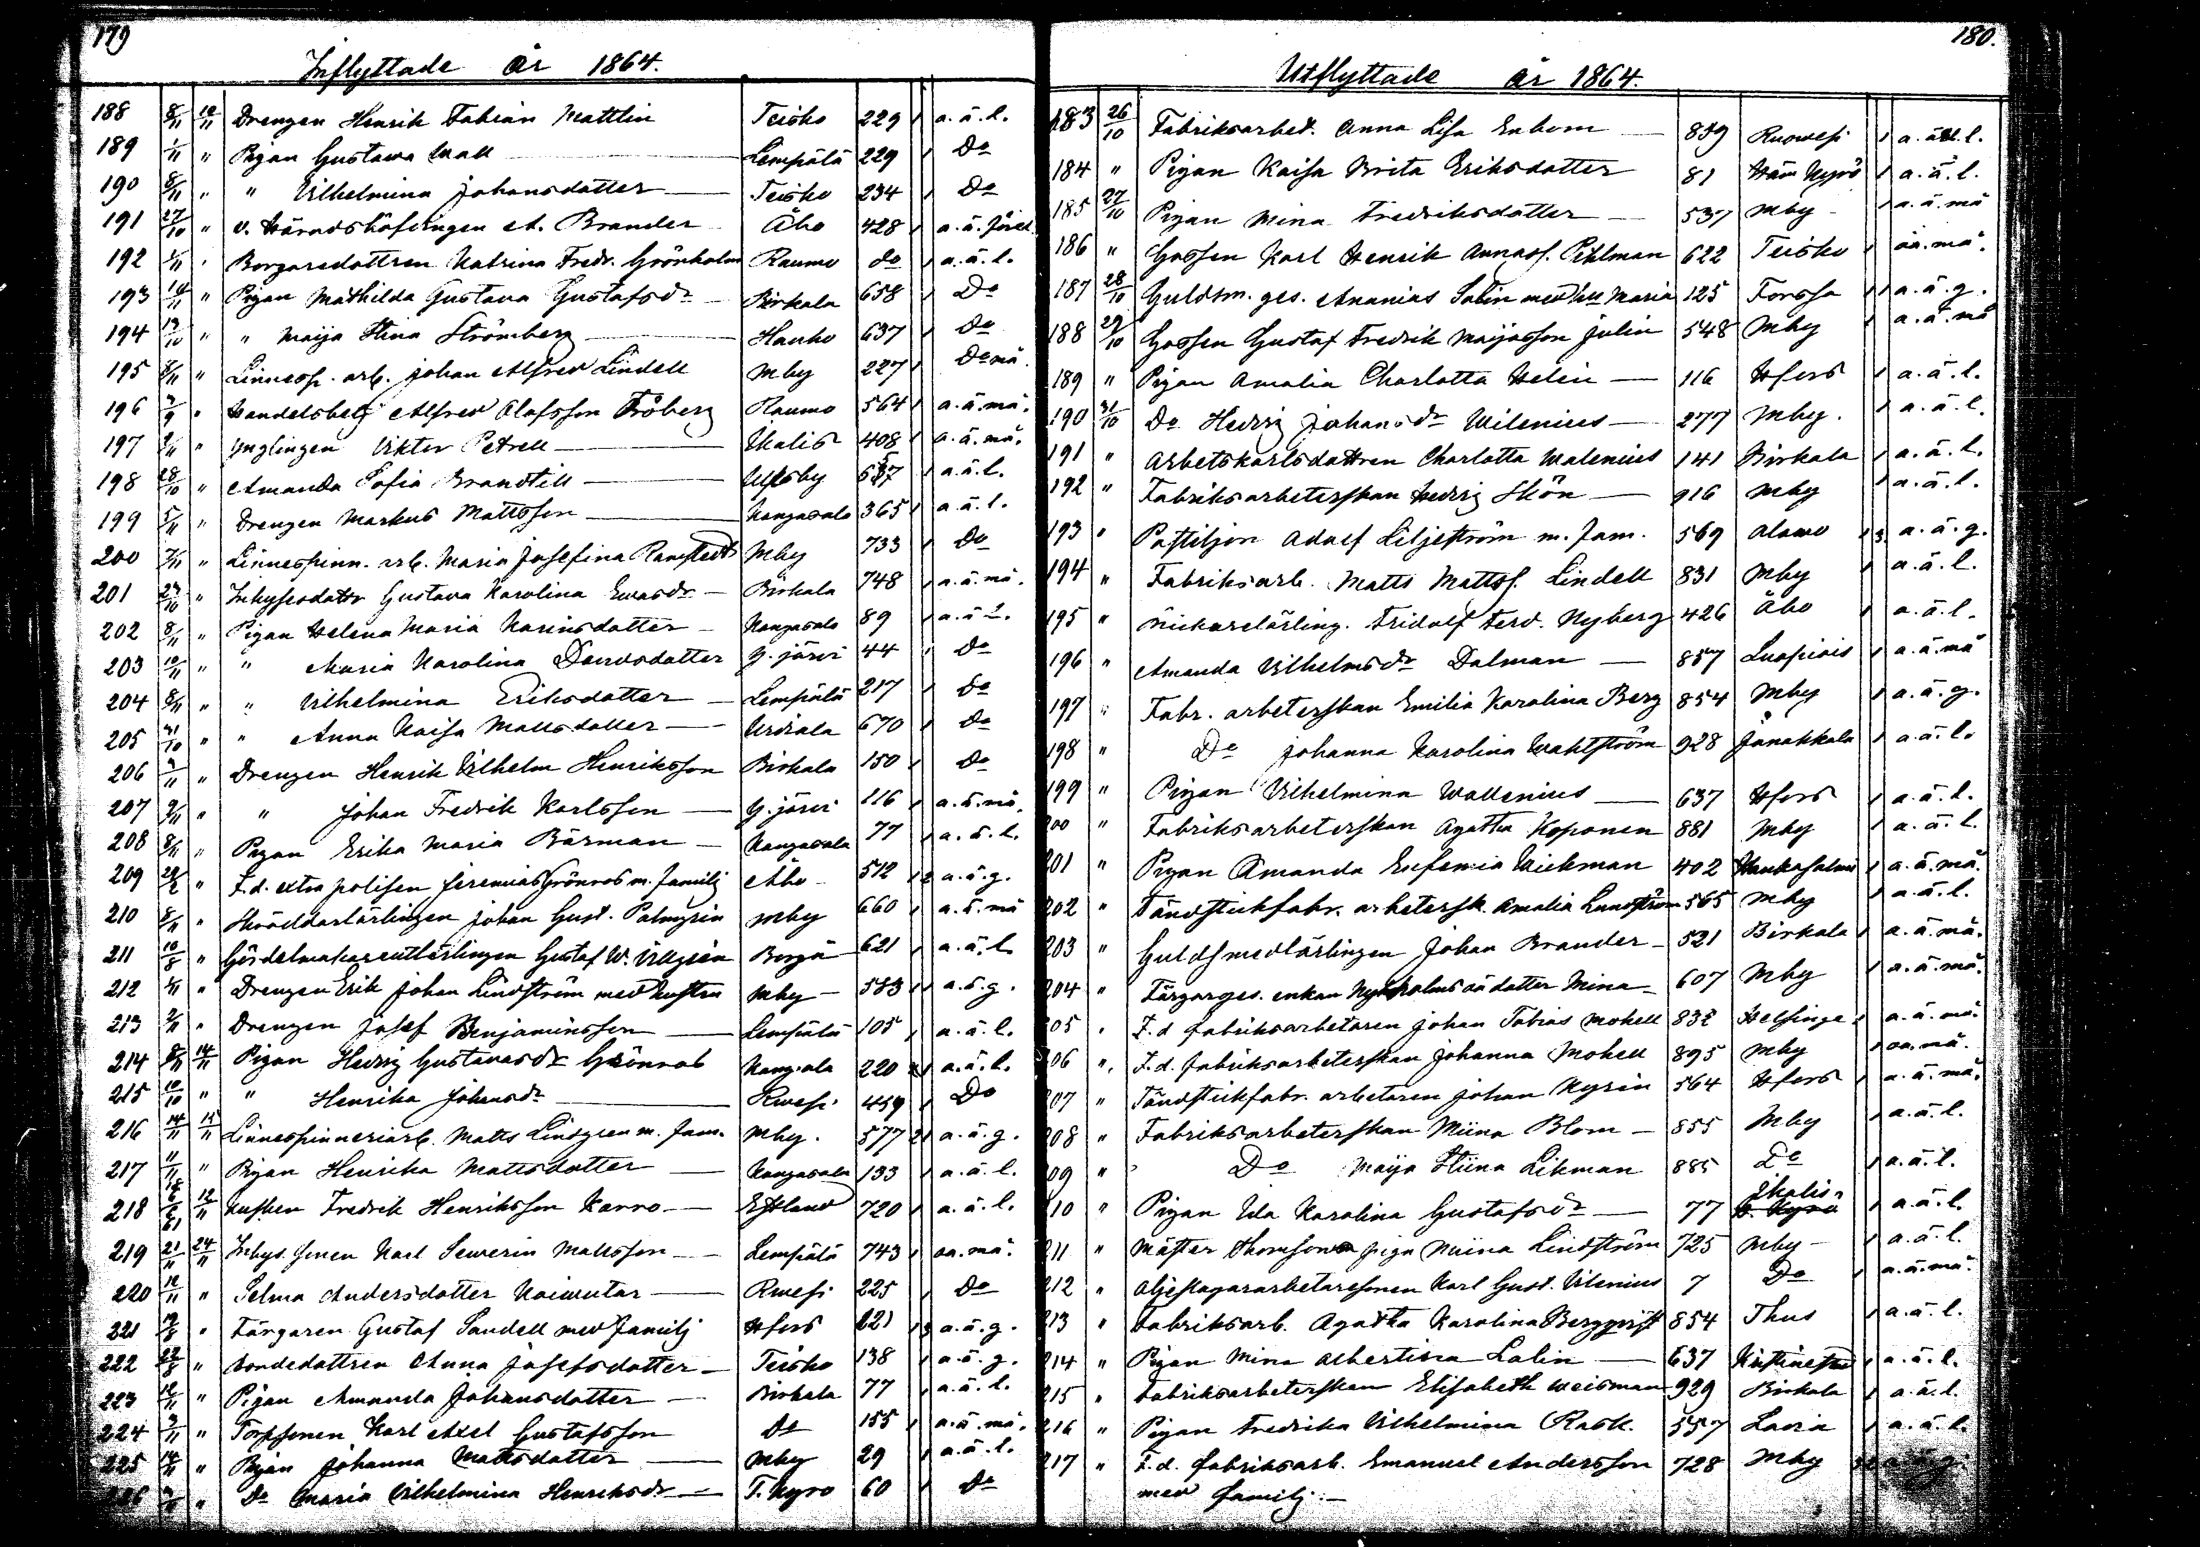 179
Inflyttade År 1864.
188 8/11 10/11 Drengen Henrik Fabian Mattlin Teisko 229 1 a. ä. l.
189 1/11 " Pigan Gustawa Wall Lempälä 229 1 Do
190 8/11 " " Vilhelmina Johansdatter Teisko 234 1 Do
191 27/10 " v. Häradshöfdingen A. Brander Åbo 428 1 a. ä.
192 1/11 " Borgaredottren Katrina Fredr. Grönholm Raumo do 1 a. ä. l.
193 14/11 " Pigan Mathilda Gustava Gustafsdr Birkala 658 1 Do
194 13/10 " " Maija Stina Strömberg Hauho 637 1 Do
195 8/11 " Linnesp. arb. Johan Alfred Lindell Mby 227 1 Do mä.
196 " Handelsbetj Alfred Olofsson Fröberg Raumo 564 1 a. ä. mä.
197 " Ynglingen Viktor Petrell Ikalis 408 1 a. ä. mä.
198 28/10 " Amanda Sofia Brandtill Ulfsby 1 a. ä. l.
199 5/11 " Drengen Markus Mattsson Kangasala 365 1 a. ä. l.
200 " Linnespinn. arb. Maria Josefina Ramstedt Mby 733 1 Do
201 27/10 " Inhysesdottr Gustava Karolina Ewasdr Birkala 748 1 a. ä. mä.
202 8/11 " Pigan Helena Maria Karinsdatter Kangasala 89 1 a. ä. l.
203 10/11 " " Maria Karolina Davidsdatter Y. järvi 44 1 Do
204 8/11 " " Vilhelmina Eriksdatter Lempälä 217 1 Do
205 31/10 " " Anna Kaisa Mattsdatter Urdiala 670 1 Do
206 " Drengen Henrik Vilhelm Henriksson Birkala 150 1 Do
207 9/11 " " Johan Fredrik Karlsson Y. järvi 116 1 a. ä. mä.
208 8/11 " Pigan Erika Maria Bärman Kangasala 77 1 a. ä. l.
209 " F. d. extra polisen Jeremias Grönroos m. familj Åbo 512 1 2 a. ä. g.
210 8/11 " Skräddarlärlingen Johan Gust. Palmgrén Mby 660 1 a. ä. mä
211 10/8 " Gördelmakareutlärlingen Gustaf W. Borgå 621 1 a. ä. l.
212 " Drengen Erik Johan Lindström med hustru Mby 583 1 1 a. ä. g.
213 " Drengen Josef Benjaminsson Lempälä 105 1 a. ä. l.
214 14/11 Pigan Hedvig Gustavasdr Grönroos Kangsala 220 1 a. ä. l.
215 10/10 " " Henrika Johansdr Rwesi 459 1 Do
216 14/11 15/11 Linnespinneriarb. Matts Lindgren m. fam. Mby. 577 2 1 a. ä. g.
217 11/11 " Pigan Henrika Mattsdatter Kangasala 133 1 a. ä. l.
218 Kusken Fredrik Henriksson Karro Estland 720 1 a. ä. l.
219 21/11 24/11 Inhys. sonen Karl Sewerin Mattsson Lempälä 743 1 oa. mä.
220 12/11 " Selma Andersdatter Koiwutar Rwesi 225 1 Do
221 " Färgaren Gustaf Sandell med familj Hfors 621 1 3 a. ä. g.
222 " Bondedottren Anna Josefsdatter Teisko 138 1 a. ä. g.
223 12/11 " Pigan Amanda Johansdatter Birkala 77 1 a. ä. l.
224 " Torpsonen Karl Axel Gustafsson Do 155 1 a. ä. mä.
225 14/11 " Pigan Johanna Mattsdatter Mby 29 1 a. ä. l.
226 " Do Maria Vilhelmina Henriksdr T. Kyro 60 1 Do
180.
Utflyttade År 1864.
183 26/10 Fabriksarbet. Anna Lisa Enbom 859 Ruovesi 1 a. ä. l.
184 " Pigan Kaisa Brita Eriksdatter 81 Häm Kyrö 1 a. ä. l.
185 27/10 Pigan Mina Fredriksdatter 537 Mby 1 a. ä. mä
186 " Gossen Karl Henrik Annass. Pihlman 622 Teisko 1 oa. mä.
187 28/10 Guldsm. ges. Ananias Salin med hu Maria 125 Forssa 1 1 a. ä. g.
188 29/10 Gossen Gustaf Fredrik Maijasson Julin 548 Mby 1 a. ä. mä
189 " Pigan Amalia Charlotta Helin 116 Hfors 1 a. ä. l.
190 31/10 Do Hedvig Johansdr Wilenius 277 Mby. 1 a. ä. l.
191 " Arbetskarlsdottren Charlotta Walenius 141 Birkala 1 a. ä. l.
192 " Fabriksarbeterskan Hedvig Skön 916 Mby 1 a. ä. l.
193 " Postiljon Adolf Liljeström m. fam. 569 Alawo 1 3 a. ä. g.
194 " Fabriksarb. Matts Mattss. Lindell 831 Mby 1 a. ä. l.
195 " Snickarelärling. Fridolf Ferd. Nyberg 426 Åbo 1 a. ä. l.
196 " Amanda Vilhelmsdr Dalman 857 Luopiois 1 a. ä. mä
197 " Fabr. arbeterskan Emilia Karolina Berg 854 Mby 1 a. ä. g.
198 " Do Johanna Karolina Wahlström 928 Janakkala 1 a. ä. l.
199 " Pigan Vilhelmina Wallenius 637 Hfors 1 a. ä. l.
200 " Fabriksarbeterskan Agatha Koponen 881 Mby 1 a. ä. l.
201 " Pigan Amanda Eufemia Wickman 402 Hankasalmi 1 a. ä. mä.
202 " Tändstickfabr. arbetersk. Amalia Lundström 565 Mby 1 a. ä. l.
203 " Guldsmedlärlingen Johan Brander 521 Birkala 1 a. ä. mä.
204 " Färgarges. enkan Nyholms oä datter Mina 607 Mby 1 a. ä. mä.
205 " F. d fabriksarbetaren Johan Tobias Mohell 832 Helsinge 1 a. ä. mä.
206 " F. d. fabriksarbeterskan Johanna Mohell 895 Mby 1 oa. mä.
207 " Tändstickfabr. arbetaren Johan Nyrén 564 Hfors 1 a. ä. mä.
208 " Fabriksarbeterskan Miina Blom 855 Mby 1 a. ä. l.
209 " Do Maija Stiina Likman 885 Do 1 a. ä. l.
210 " Pigan Ida Karolina Gustafsdr 77 Ikalis 1 a. ä. l.
211 " Mäster Thomsons piga Miina Lindström 725 Mby 1 a. ä. l.
212 " Oljeslagararbetaresonen Karl Gust. Vilenius 7 Do 1 a. ä. mä.
213 " Fabriksarb. Agatha Karolina Bergqvist 854 Thus 1 a. ä. l.
214 " Pigan Mina Albertina Lalin 637 Kristinestad 1 a. ä. l.
215 " Fabriksarbeterskan Elisabeth Weisman 929 Birkala 1 a. ä. l.
216 " Pigan Fredrika Vilhelmina Rask. 557 Lavia 1 a. ä. l.
217 " F. d. fabriksarb. Emanuel Andersson 728 Mby a. ä. g.
med familj.